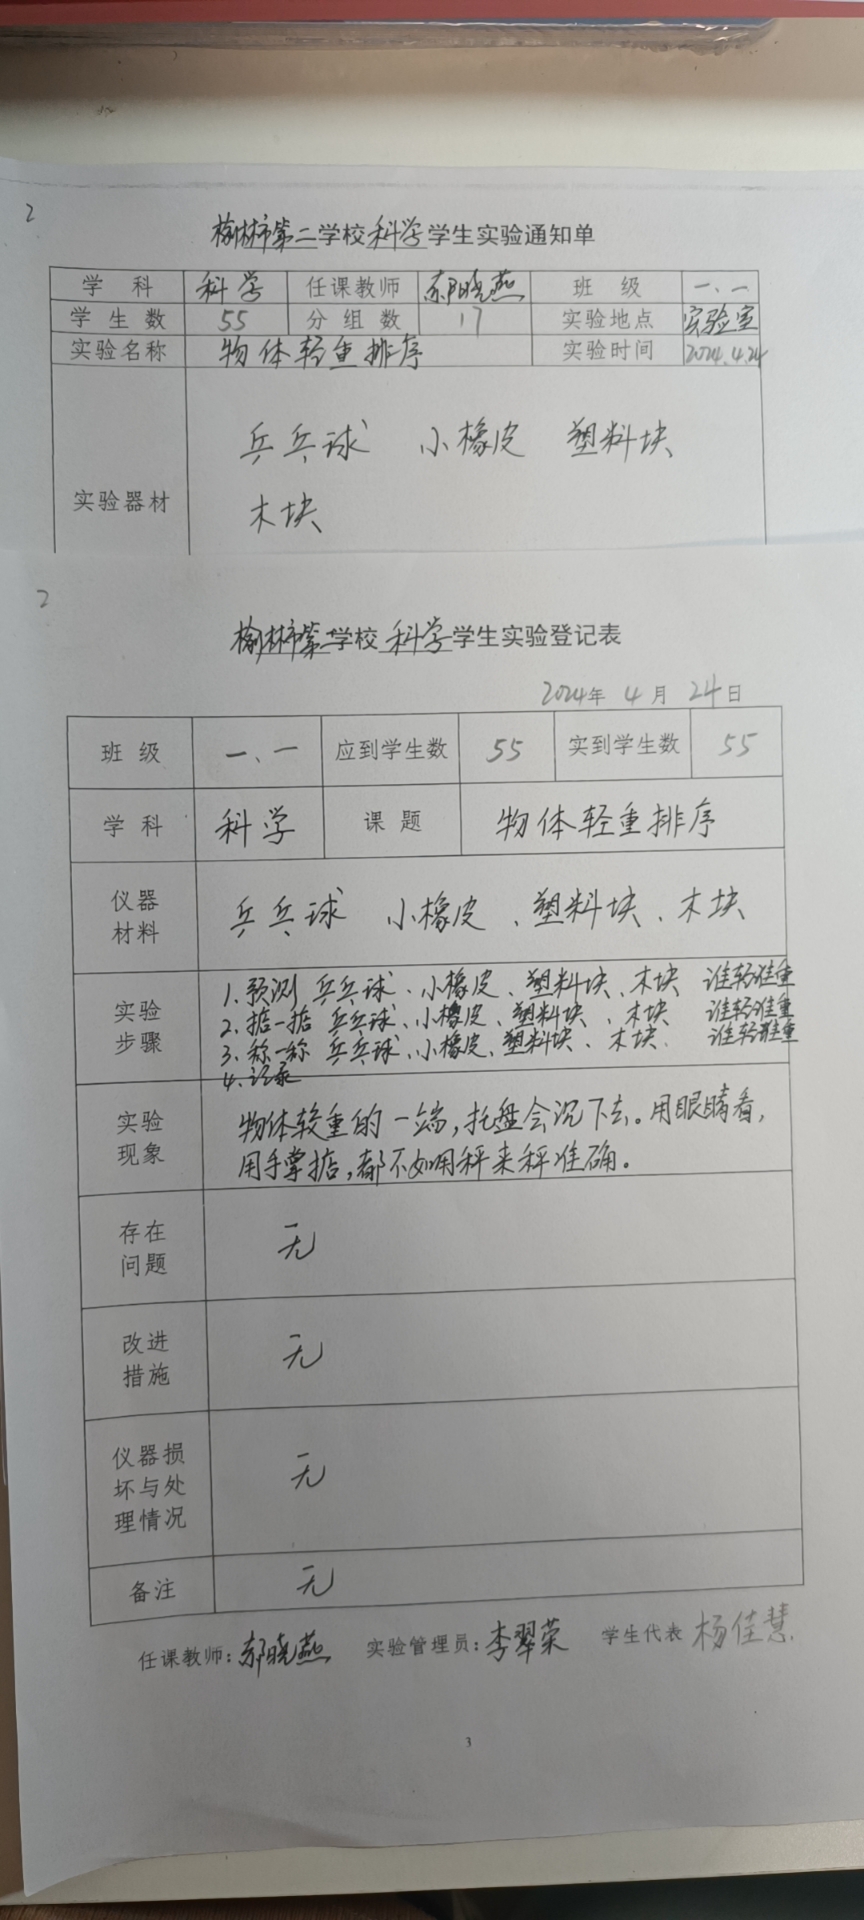 2
榆林市第二学校科学学生实验通知单
学科 科学 任课教师 郝晓燕 班级 一、一
学生数 55 分组数 17 实验地点 实验室
实验名称 物体轻重排序 实验时间 2024.4.24
乒乓球 小橡皮 塑料块
实验器材
木块
2
榆林市第二学校科学学生实验登记表
2024年4月24日
班级 一、一 应到学生数 55 实到学生数 55
学科 科学 课题 物体轻重排序
仪器材料 乒乓球 小橡皮、塑料块、木块
实验步骤
1.预测 乒乓球、小橡皮、塑料块、木块 谁轻谁重
2.掂一掂 乒乓球、小橡皮、塑料块、木块 谁轻谁重
3.称一称 乒乓球、小橡皮、塑料块、木块 谁轻谁重
4.记录
实验现象
物体较重的一端,托盘会沉下去。用眼睛看,
用手掌掂,都不如用秤来秤准确。
存在问题 无
改进措施 无
仪器损坏与处理情况 无
备注 无
任课教师:郝晓燕 实验管理员:李翠荣 学生代表 杨佳慧
3